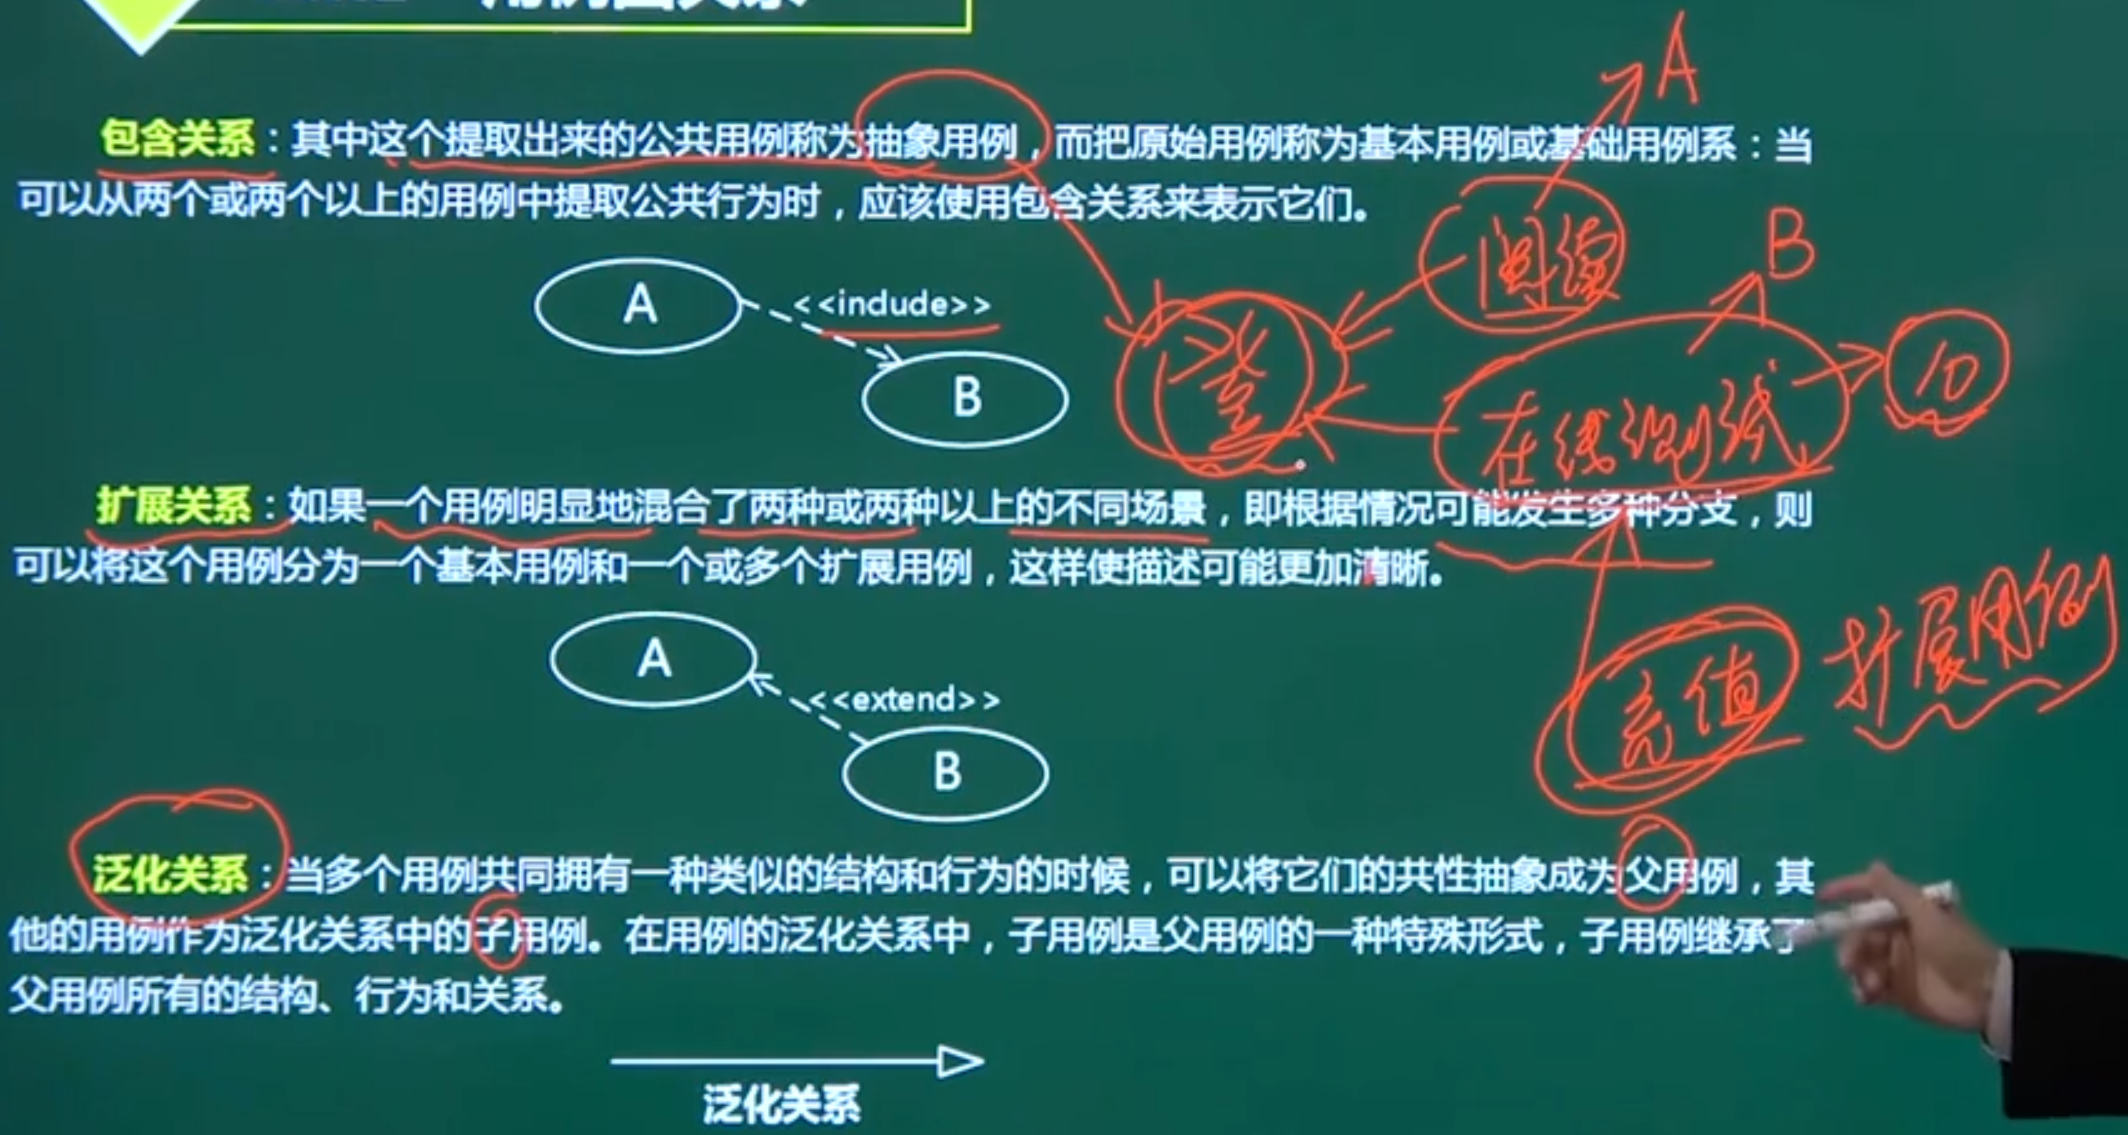 用例图关系
包含关系：其中这个提取出来的公共用例称为抽象用例，而把原始用例称为基本用例或基础用例系：当
可以从两个或两个以上的用例中提取公共行为时，应该使用包含关系来表示它们。
A
<<indude>>
B
A
阅读
B
在线测试
10
扩展关系：如果一个用例明显地混合了两种或两种以上的不同场景，即根据情况可能发生多种分支，则
可以将这个用例分为一个基本用例和一个或多个扩展用例，这样使描述可能更加清晰。
A
<<extend>>
B
充值
扩展用例
泛化关系：当多个用例共同拥有一种类似的结构和行为的时候，可以将它们的共性抽象成为父用例，其
他的用例作为泛化关系中的子用例。在用例的泛化关系中，子用例是父用例的一种特殊形式，子用例继承了
父用例所有的结构、行为和关系。
泛化关系